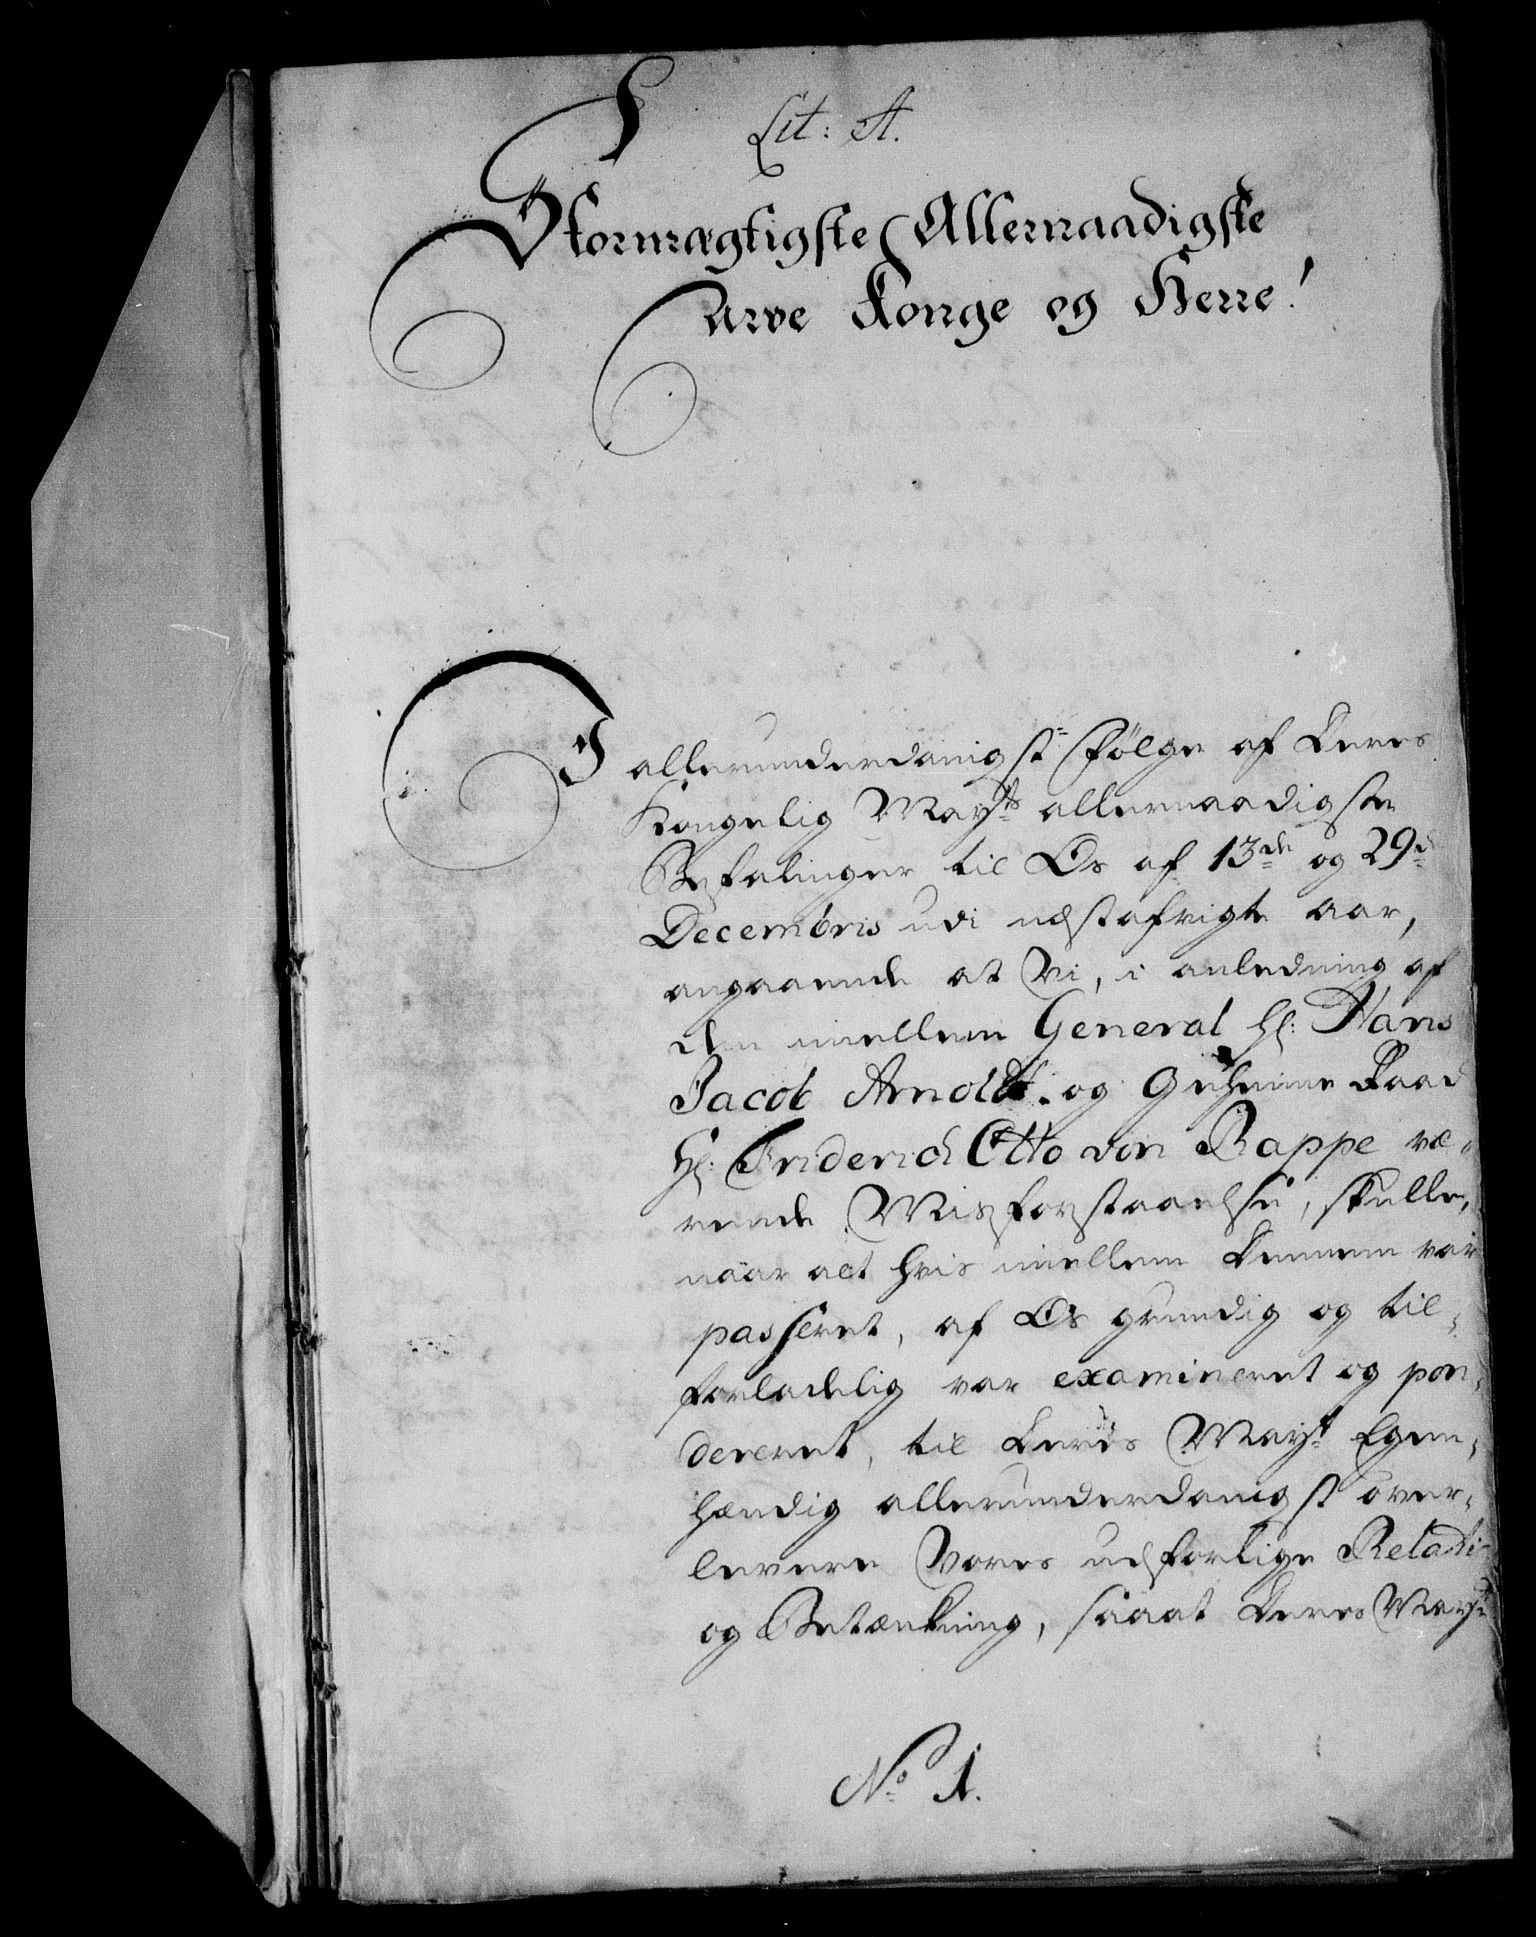 Lit: A.
Stormægtigste Allernaadigste
Arve Konge og Herre!
I allerunderdanigst følge af Deres
Kongelig Mayts allernaadigste
Befalinger til Os af 13de og 29d
Decembris udi næstafvigte aar,
angaaende at Vi, i anledning af
den imellem General Hr: Hans
Jacob Arnoldt. og Geheime Raad
Hr: Friderich Otto von Rappe væ-
rende Misforstaaelse, skulle,
naar alt hvis imellem Dennem var
passeret, af Os grundig og til-
forladelig var examineret og pon-
dereret, til Deres Mayt Egen-
hændig allerunderdanigst over-
levere Vores udførlige Relati-
og Betænkning, saaat Deres Mayt
No 1.